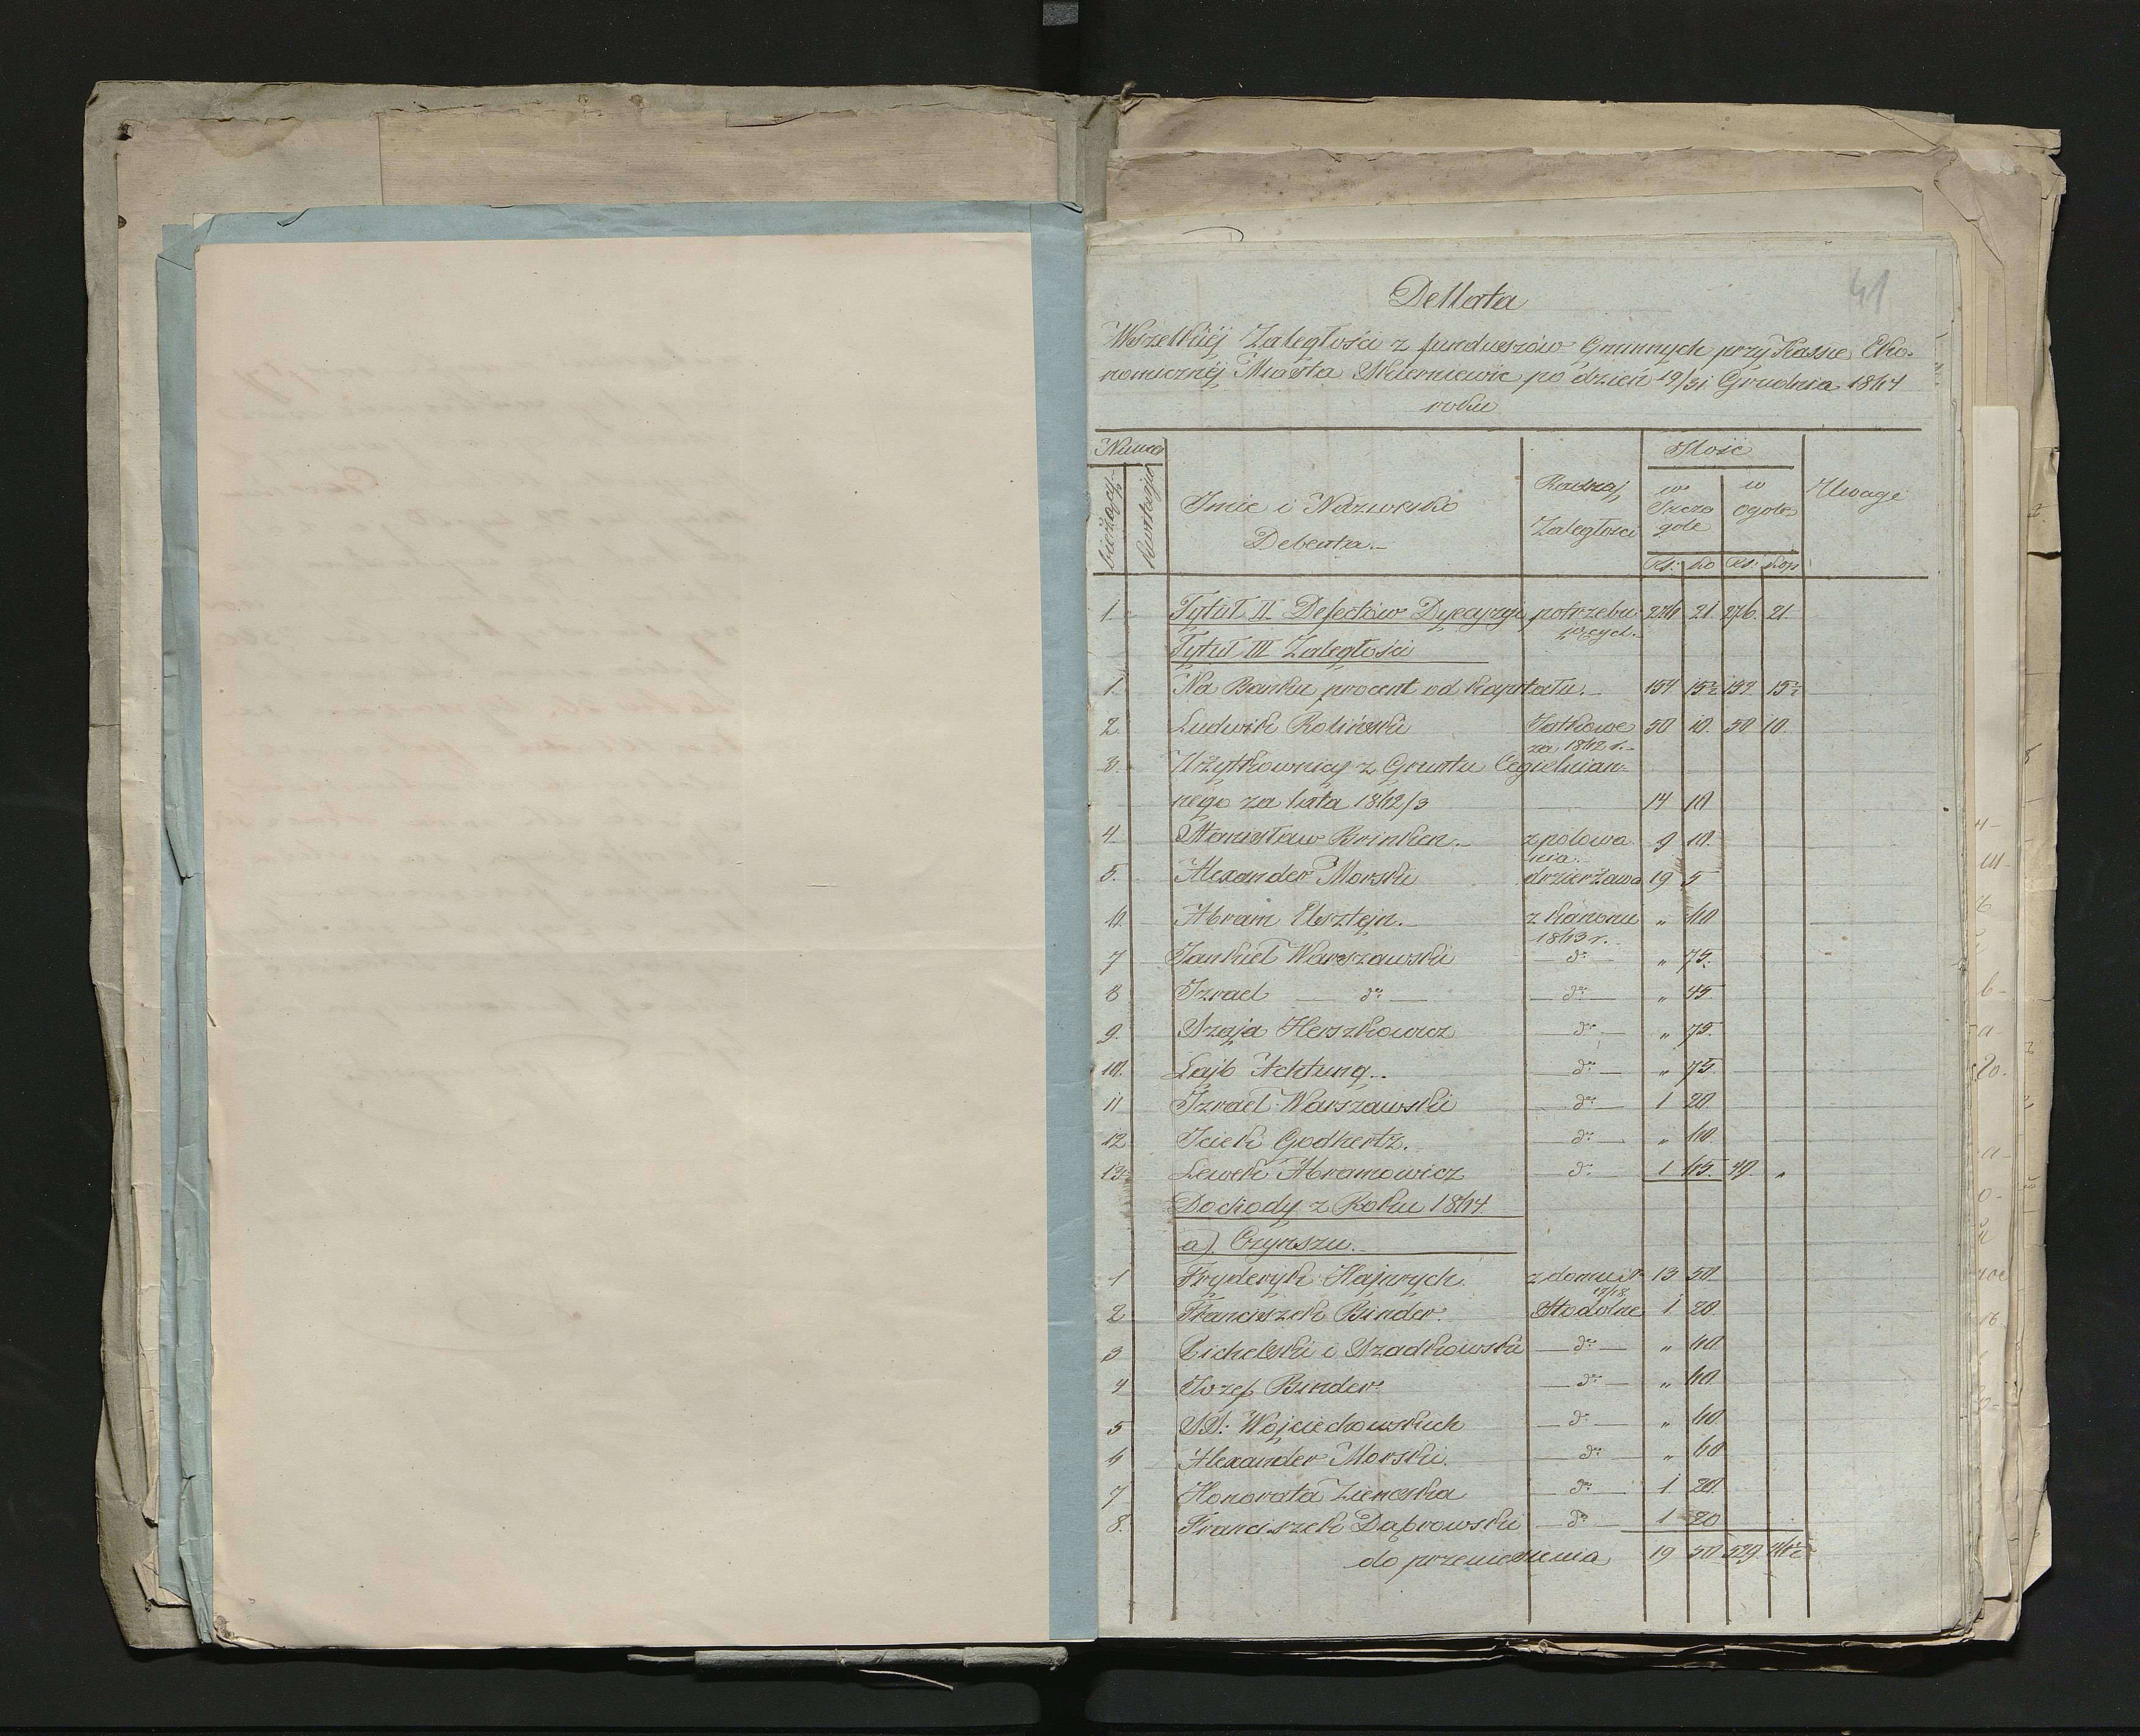 41
Dellata
Wszelkiej Zaległości z funduszów Gminnych przy Kassie Eko-
nomicznej Miasta Skierniewic po dzień 19/31 Grudnia 1864
roku
Numer Ilość
bieżący Kwitarjusza Imie i Nazwisko Debenta.- Rodzaj Zaległości w Szcze gole w Ogole Uwagi
Rs: Ko Rs: Kop
1. Tytuł II. Defectów Decyzyi potrzebu 276 21 276. 21.
jących.-
Tytuł III Zaległości
1. Na Banku procent od Kapitału.- 154 15½ 154 15½
2. Ludwik Roliński Jatkowe 50 10. 50 10.
za 1862 r.-
3. Użytkownicy z Gruntu Cegielnian-
nego za lata 1862/3 14 10
4. Stanisław Brinken.- z polowa 9 10.
nia.-
5. Alexander Morski dzierżawa 19 5
6. Abram Elsztejn.- z kanonu „ 60
1863 r.-
7 Jankiel Warszawski d° „ 75.
8 Izrael d° d° „ 45
9. Szaja Herszkowicz d° „ 75.
10. Lajb Achtung.- d° „ 75.
11 Izrael Warszawski d° 1 20.
12 Iciek Godhertz. d° „ 60
13 Lewek Abramowicz d° 1 65. 49. „
Dochody z Roku 1864
a). Czynszu.-
1 Fryderyk Hajnrych. z domu N° 13 50.
17/18
2 Franciszek Binder. Stodolne 1 20.
3 Cichelski i Szadkowski d° „ 60
4 Jozef Binder d° „ 60.
5 SS: Wojciechowskich d° „ 60
6 Alexander Morski. d° „ 60
7 Honorata Zieneska d° 1 20.
8. Franciszek Dąbrowski d° 1 20
do przeniesienia 19 50 529 46½